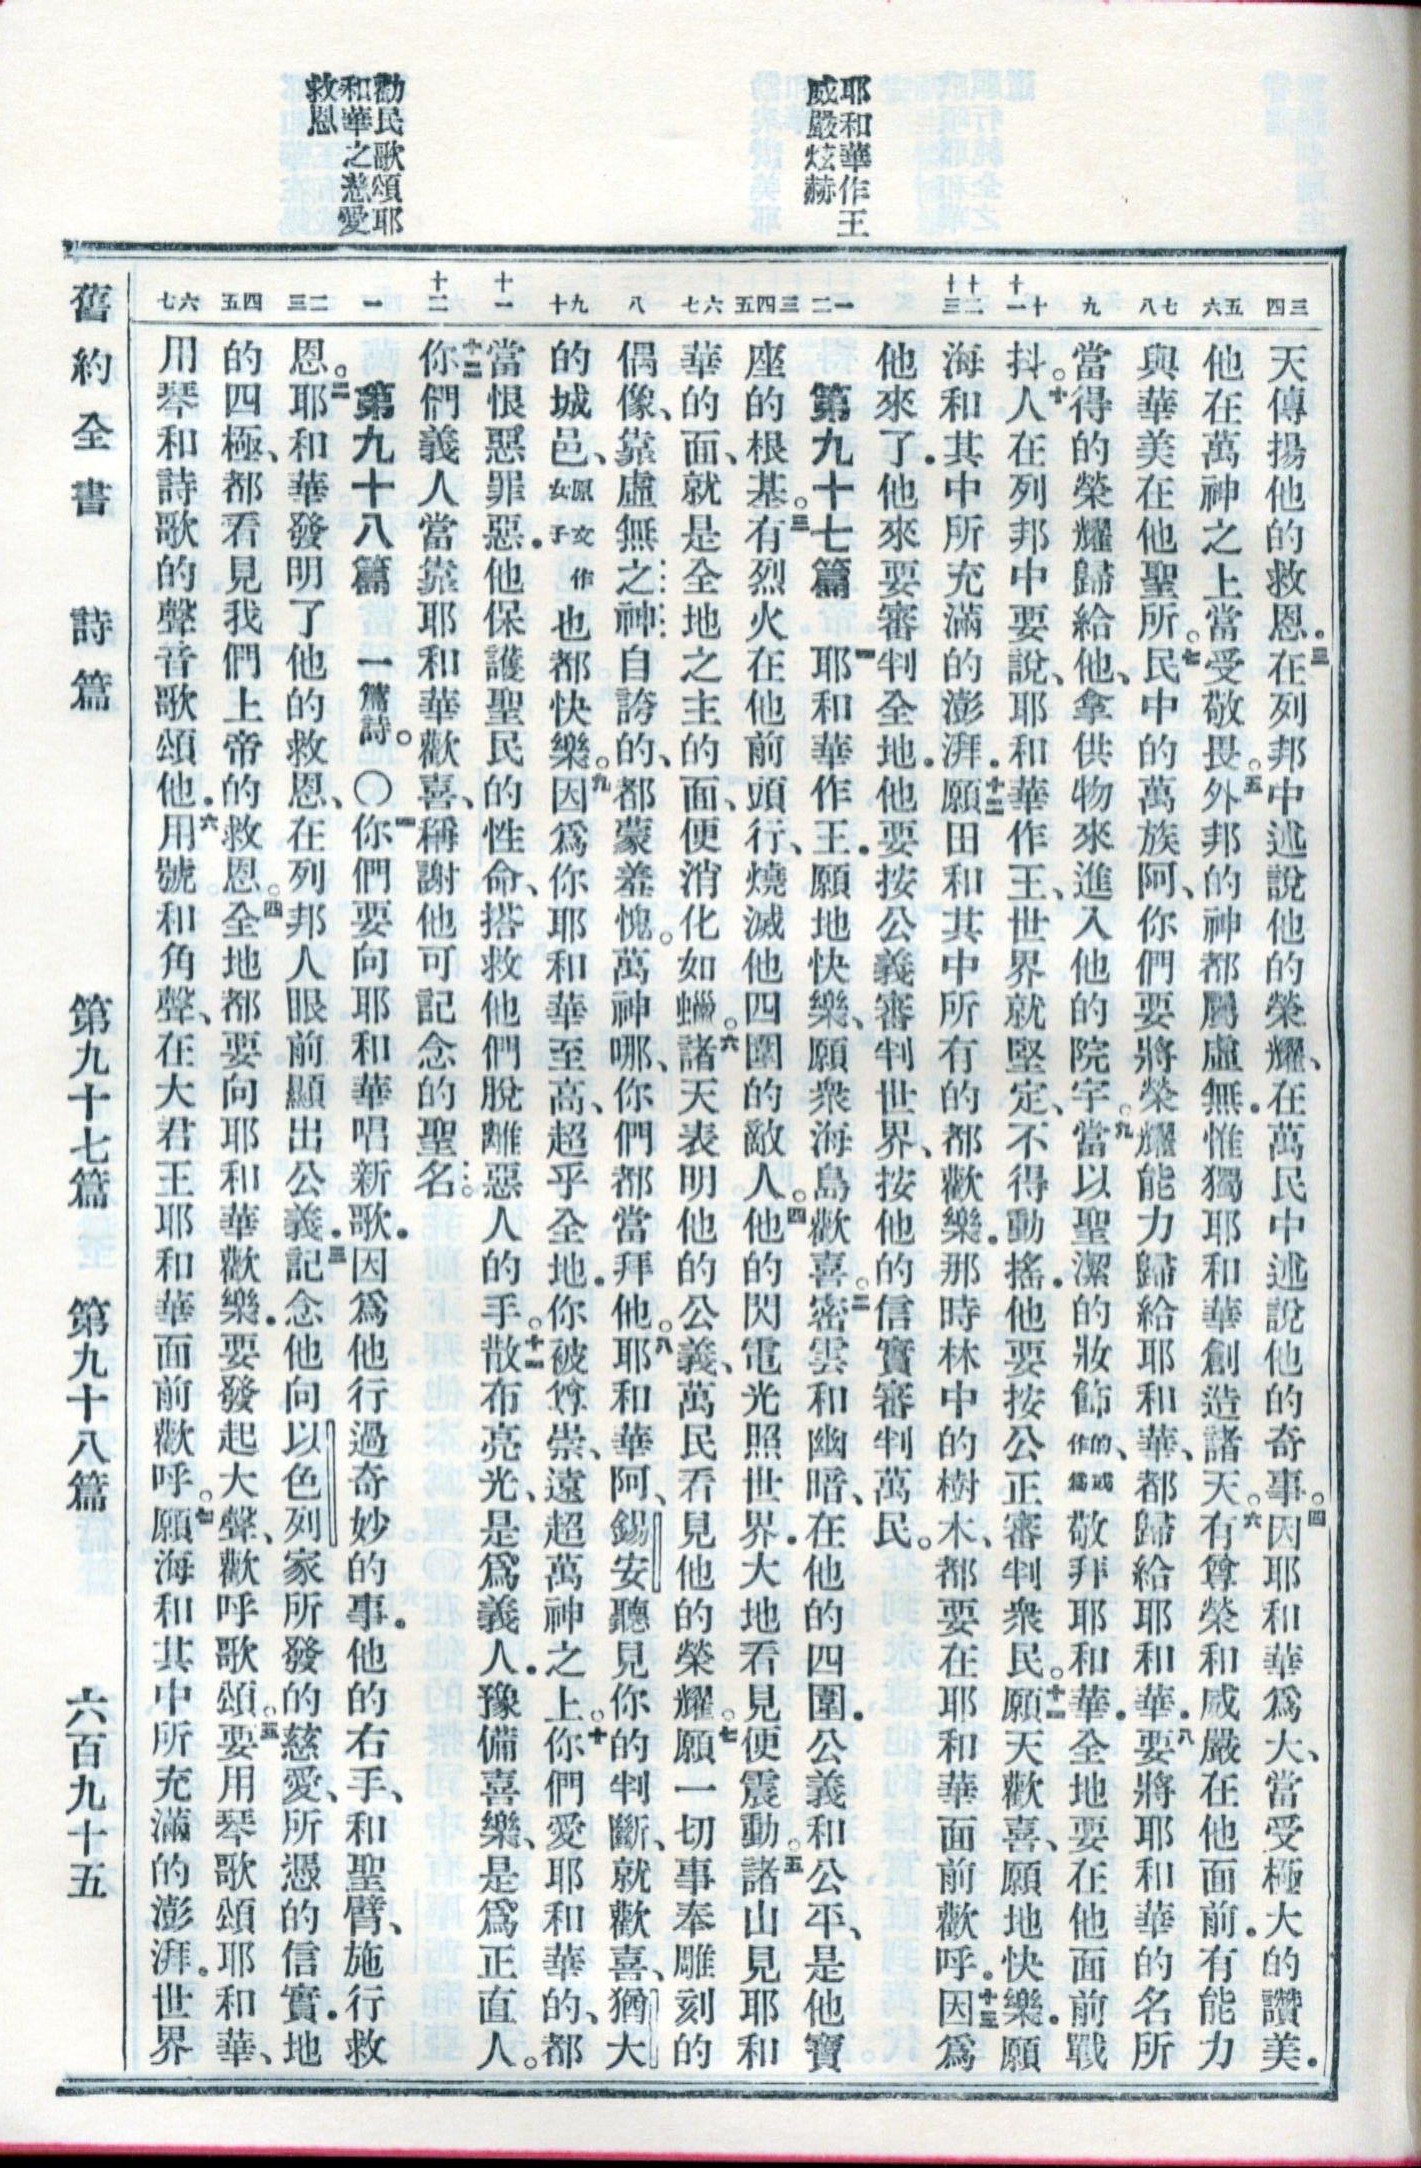 耶和華作王
威嚴炫赫
勸民歌頌耶
和華之慈愛
救恩
三 四
五 六
七 八
九
十 十一
十二 十三
一 二
三 四 五
六 七
八
九 十
十一
十二
一
二 三
四 五
六 七
天傳揚他的救恩．三在列邦中述說他的榮耀、在萬民中述說他的奇事。四因耶和華爲大、當受極大的讚美．
他在萬神之上當受敬畏。五外邦的神都屬虛無．惟獨耶和華創造諸天。六有尊榮和威嚴在他面前．有能力
與華美在他聖所。七民中的萬族阿、你們要將榮耀能力歸給耶和華、都歸給耶和華．八要將耶和華的名所
當得的榮耀歸給他、拿供物來進入他的院宇。九當以聖潔的妝飾、的或作爲敬拜耶和華．全地要在他面前戰
抖。十人在列邦中要說、耶和華作王、世界就堅定、不得動搖．他要按公正審判衆民。十一願天歡喜、願地快樂．願
海和其中所充滿的澎湃．十二願田和其中所有的都歡樂．那時林中的樹木、都要在耶和華面前歡呼．十三因爲
他來了．他來要審判全地．他要按公義審判世界、按他的信實審判萬民。
第九十七篇　一耶和華作王．願地快樂、願衆海島歡喜。二密雲和幽暗、在他的四圍．公義和公平、是他寶
座的根基。三有烈火在他前頭行、燒滅他四圍的敵人。四他的閃電光照世界．大地看見便震動。五諸山見耶和
華的面、就是全地之主的面、便消化如蠟。六諸天表明他的公義、萬民看見他的榮耀。七願一切事奉雕刻的
偶像、靠虛無之神自誇的、都蒙羞愧。萬神哪、你們都當拜他。八耶和華阿、錫安聽見你的判斷、就歡喜、猶大
的城邑、原文作女子也都快樂。九因爲你耶和華至高、超乎全地．你被尊崇、遠超萬神之上。十你們愛耶和華的、都
當恨惡罪惡．他保護聖民的性命、搭救他們脫離惡人的手。十一散布亮光、是爲義人．豫備喜樂、是爲正直人。
十二你們義人當靠耶和華歡喜、稱謝他可記念的聖名。
第九十八篇　一篇詩。○一你們要向耶和華唱新歌．因爲他行過奇妙的事．他的右手、和聖臂、施行救
恩。二耶和華發明了他的救恩、在列邦人眼前顯出公義．三記念他向以色列家所發的慈愛、所憑的信實．地
的四極、都看見我們上帝的救恩。四全地都要向耶和華歡樂．要發起大聲、歡呼歌頌。五要用琴歌頌耶和華、
用琴和詩歌的聲音歌頌他．六用號和角聲、在大君王耶和華面前歡呼。七願海和其中所充滿的澎湃．世界
舊約全書　詩篇　第九十七篇　第九十八篇　六百九十五